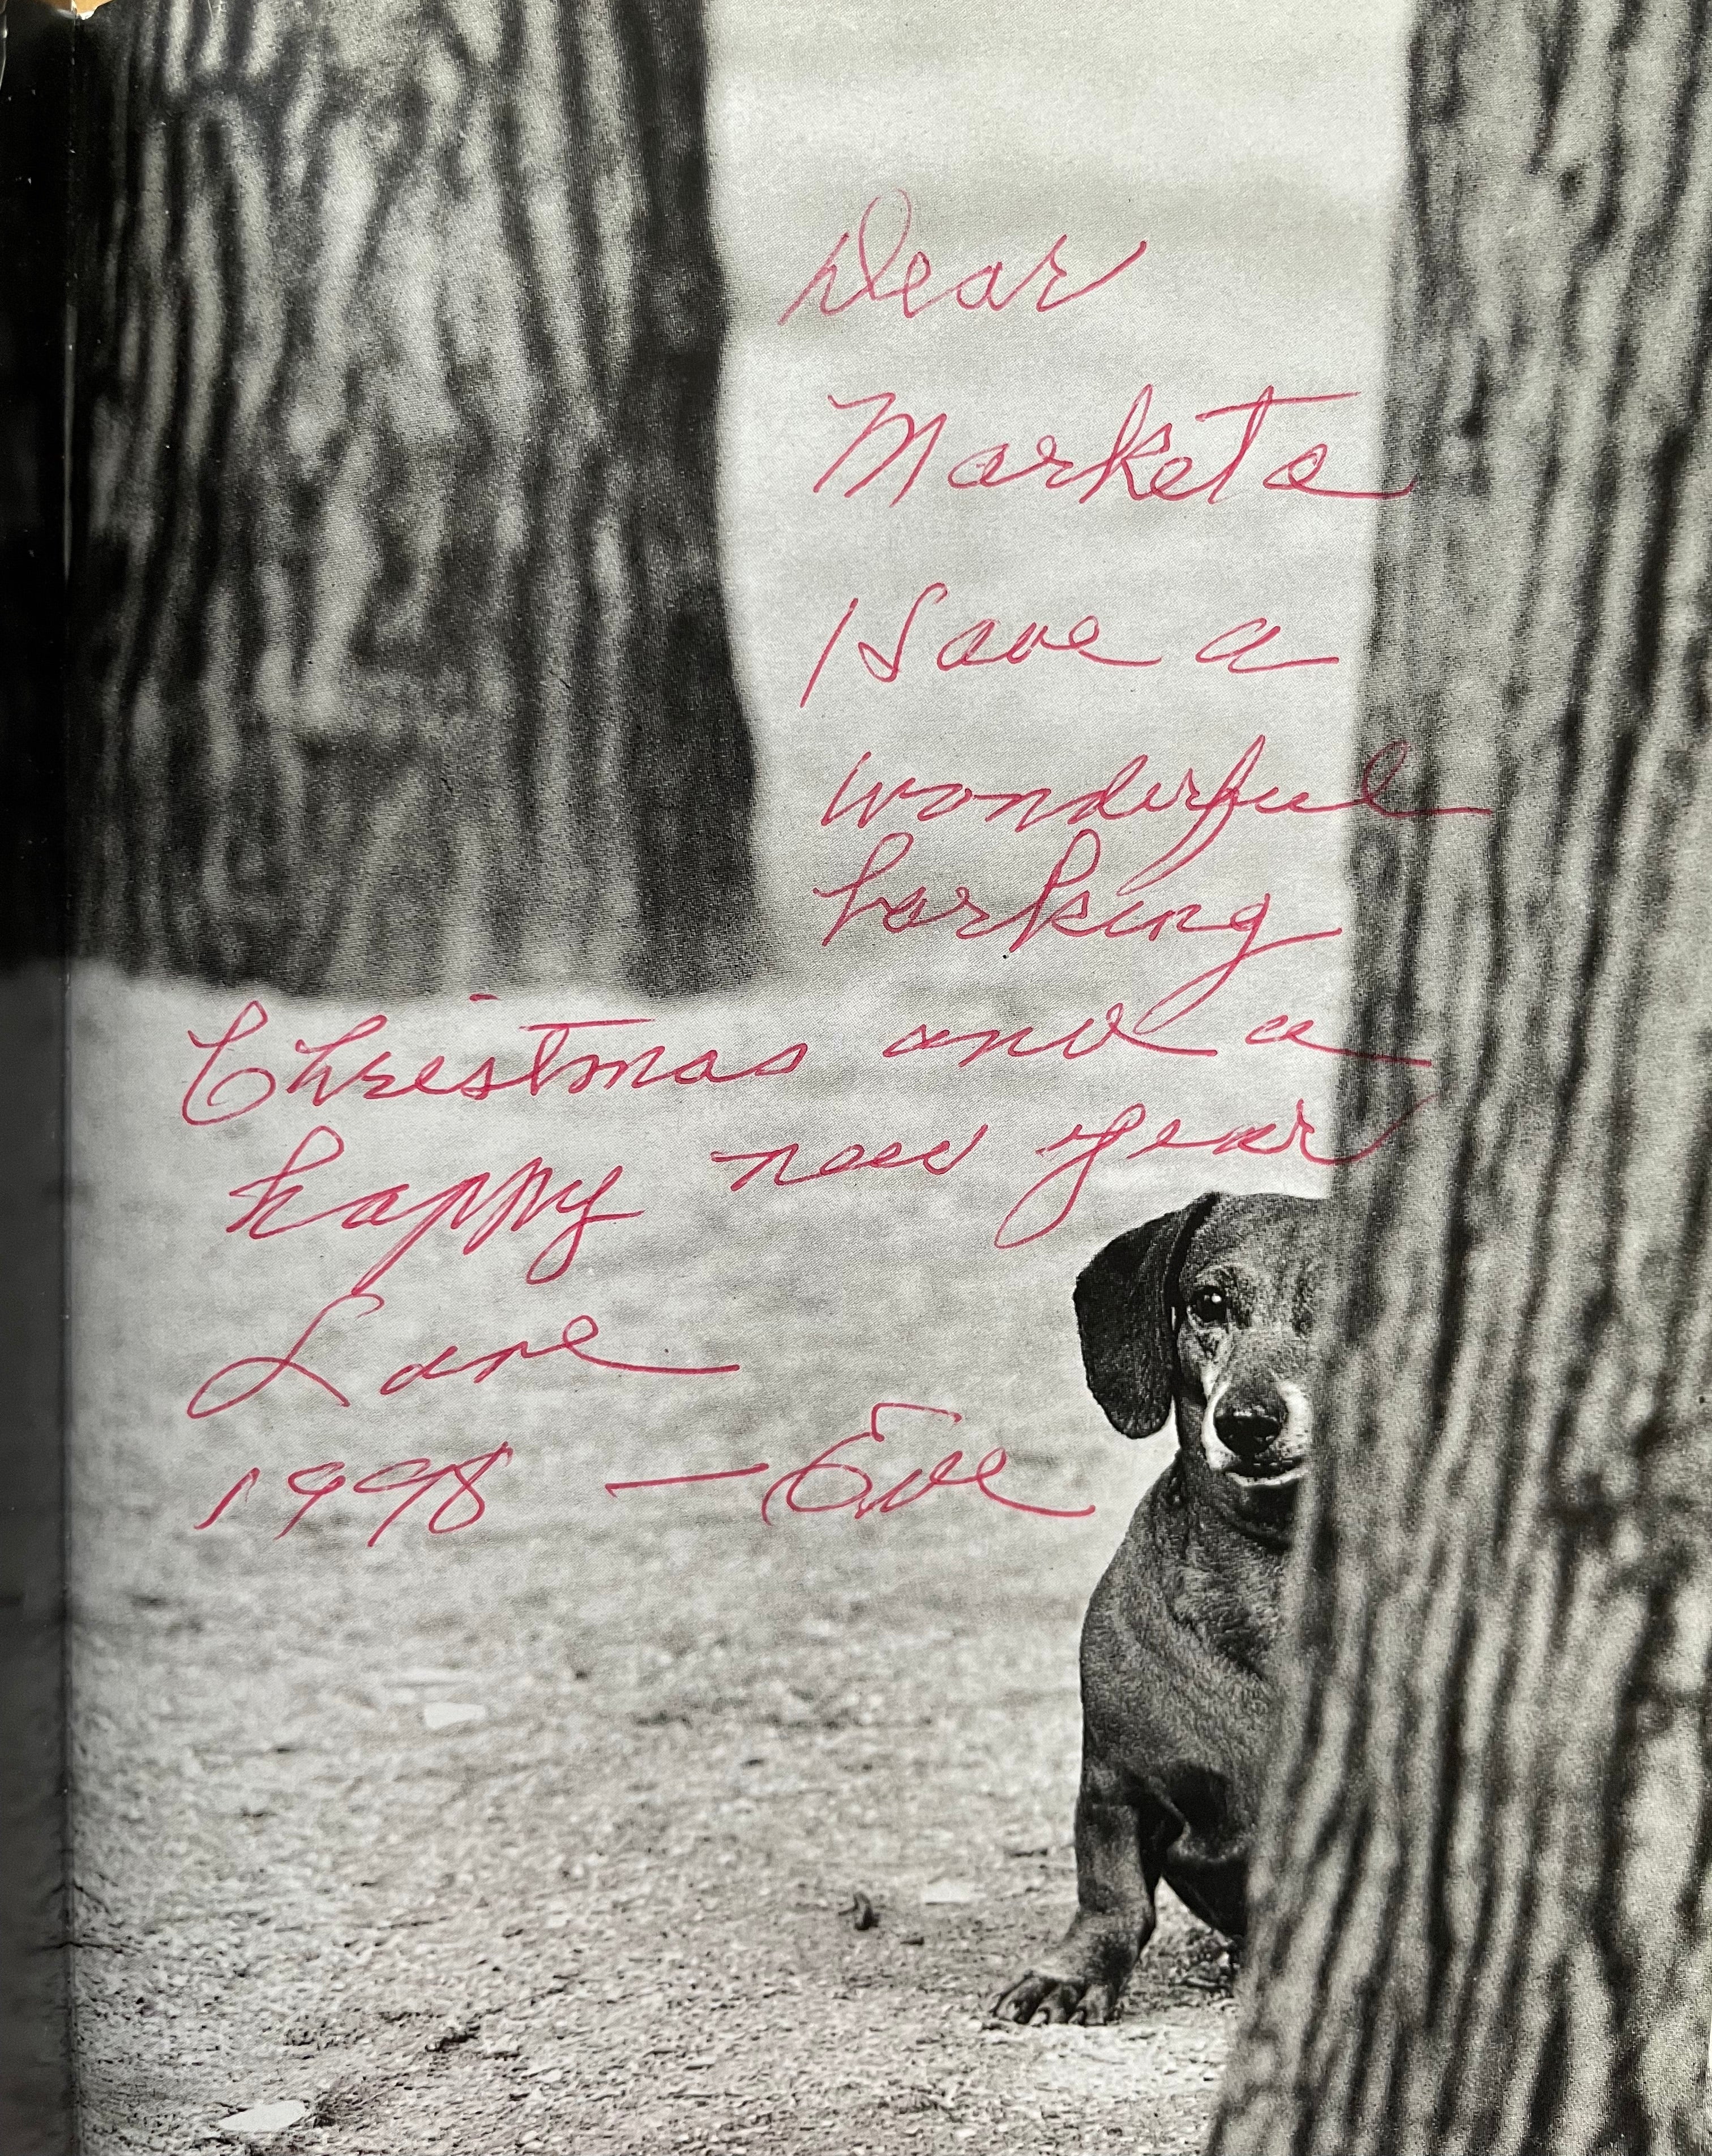 Dear
Marketa
Have a
wonderful
barking
Christmas and a
happy new year
Love
1998 — Eve